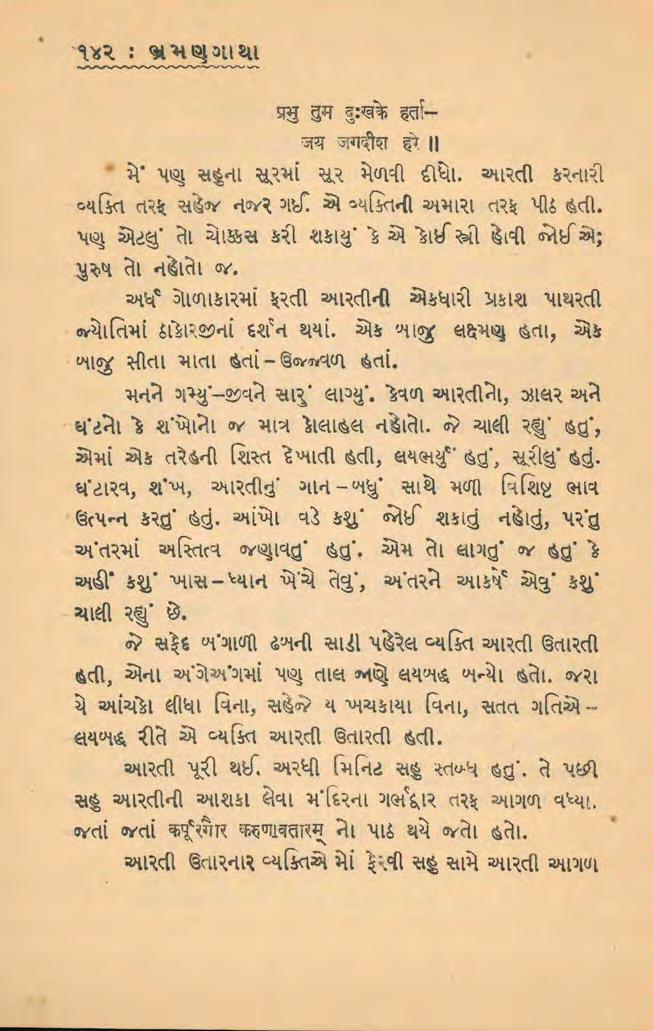 ૧૪૨ : ભ્રમણગાથા
प्रभु तुम दुःखके हर्ता—
जय जगदीश हरे ॥
મેં પણ સહુના સૂરમાં સૂર મેળવી દીધો. આરતી કરનારી
વ્યક્તિ તરફ સહેજ નજર ગઈ. એ વ્યક્તિની અમારા તરફ પીઠ હતી.
પણ એટલું તો ચોક્કસ કરી શકાયું કે એ કોઈ સ્ત્રી હોવી જોઈએ;
પુરુષ તો નહોતો જ.
અર્ધ ગોળાકારમાં ફરતી આરતીની એકધારી પ્રકાશ પાથરતી
જ્યોતિમાં ઠાકોરજીનાં દર્શન થયાં. એક બાજુ લક્ષ્મણ હતા, એક
બાજુ સીતા માતા હતાં – ઉજ્જવળ હતાં.
મનને ગમ્યું–જીવને સારું લાગ્યું. કેવળ આરતીનો, ઝાલર અને
ઘંટનો કે શંખોનો જ માત્ર કોલાહલ નહોતો. જે ચાલી રહ્યું હતું,
એમાં એક તરેહની શિસ્ત દેખાતી હતી, લયભર્યું હતું, સૂરીલું હતું.
ઘંટારવ, શંખ, આરતીનું ગાન – બધું સાથે મળી વિશિષ્ટ ભાવ
ઉત્પન્ન કરતું હતું. આંખો વડે કશું જોઈ શકાતું નહોતું, પરંતુ
અંતરમાં અસ્તિત્વ જણાવતું હતું. એમ તો લાગતું જ હતું કે
અહીં કશું ખાસ – ધ્યાન ખેંચે તેવું, અંતરને આકર્ષે એવું કશું
ચાલી રહ્યું છે.
જે સફેદ બંગાળી ઢબની સાડી પહેરેલ વ્યક્તિ આરતી ઉતારતી
હતી, એના અંગેઅંગમાં પણ તાલ જાણે લયબદ્ધ બન્યો હતો. જરા
યે આંચકો લીધા વિના, સહેજે ય ખચકાયા વિના, સતત ગતિએ –
લયબદ્ધ રીતે એ વ્યક્તિ આરતી ઉતારતી હતી.
આરતી પૂરી થઈ. અરધી મિનિટ સહુ સ્તબ્ધ હતું. તે પછી
સહુ આરતીની આશકા લેવા મંદિરના ગર્ભદ્વાર તરફ આગળ વધ્યા.
જતાં જતાં कर्पूरगौर करुणावतारम् નો પાઠ થયે જતો હતો.
આરતી ઉતારનાર વ્યક્તિએ મોં ફેરવી સહુ સામે આરતી આગળ